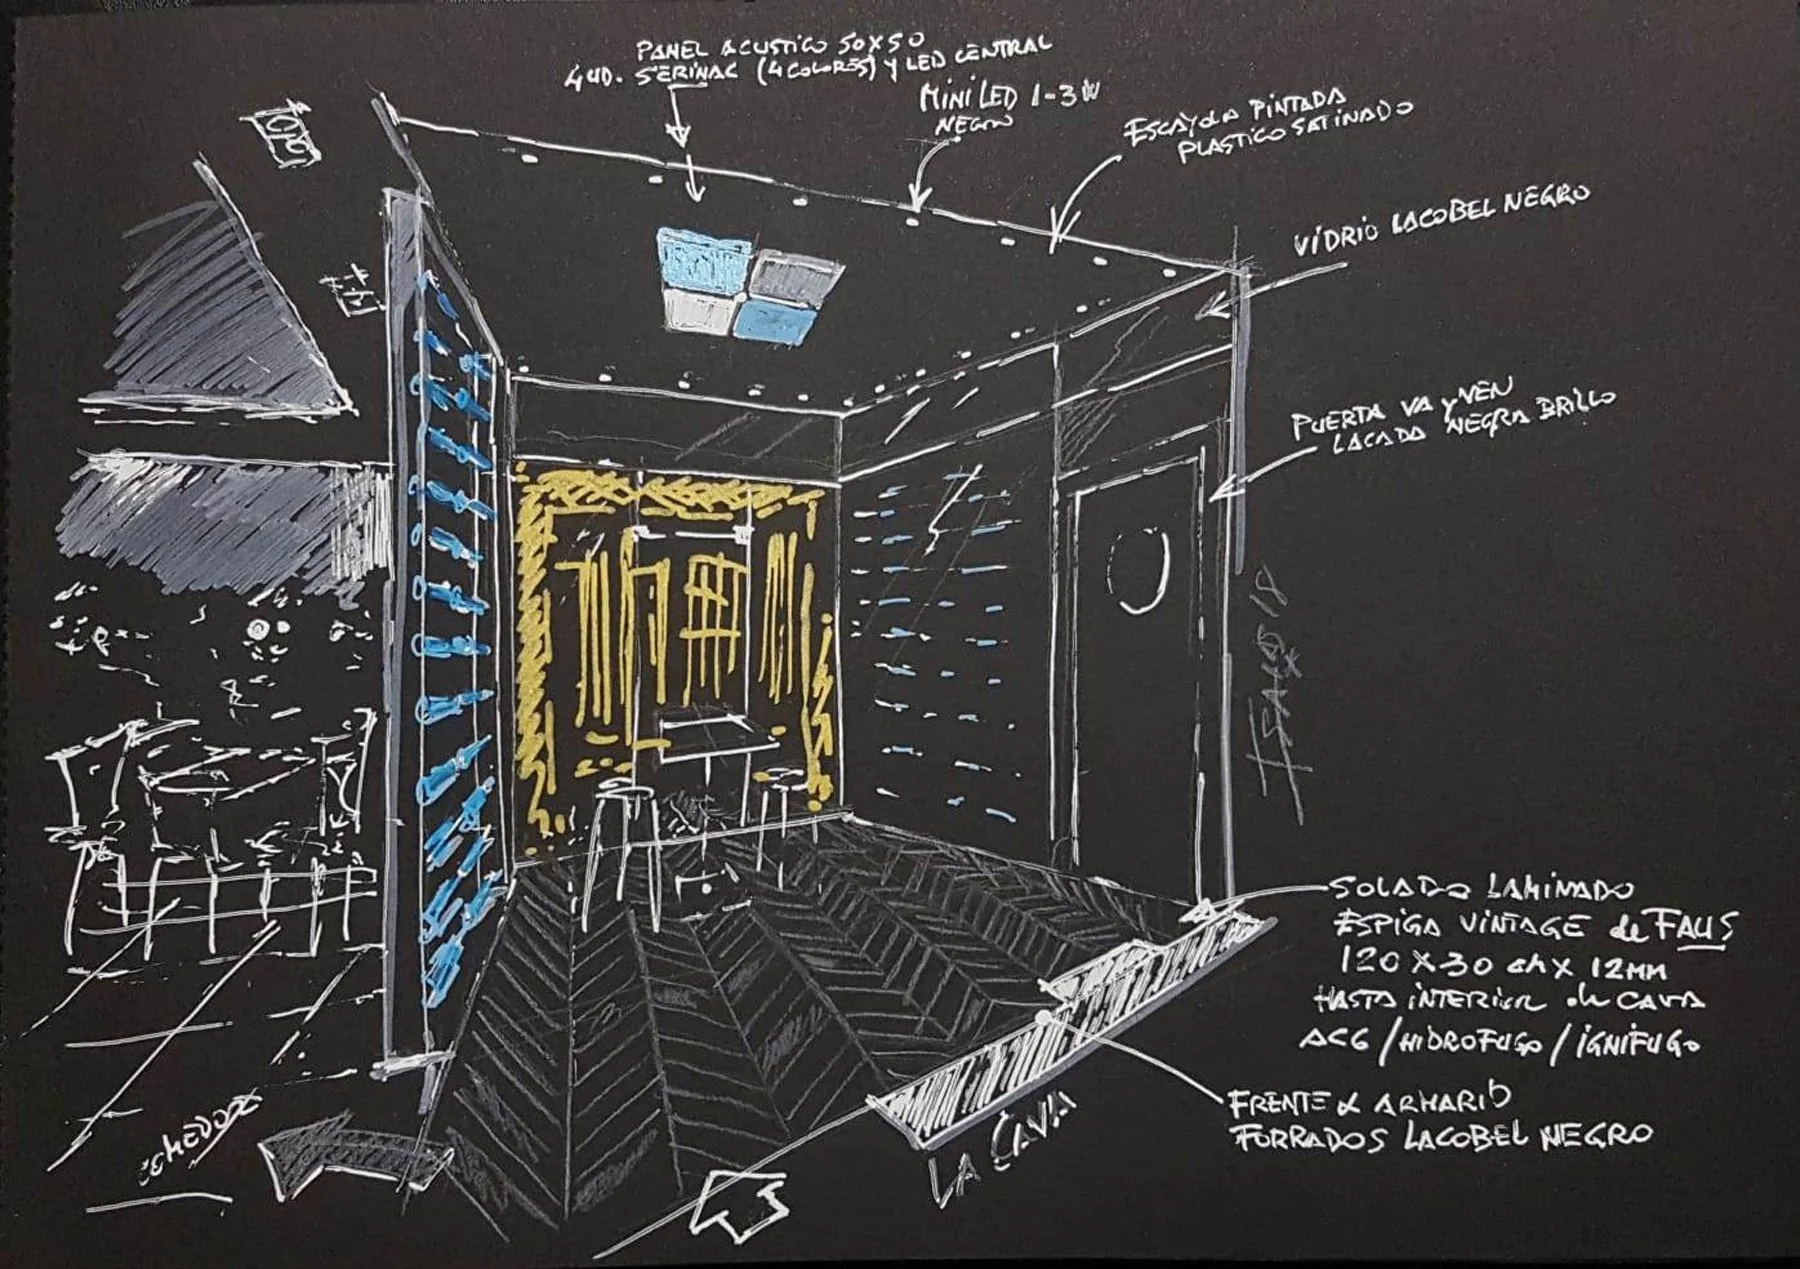 PANEL ACUSTICO 50X50
4 UD. SERINAC (4 COLORES) Y LED CENTRAL
MINI LED 1-3W
NEGRO
ESCAYOLA PINTADA
PLASTICO SATINADO
VIDRIO LACOBEL NEGRO
PUERTA VA y VEN
LACADA NEGRA BRILLO
SOLADO LAMINADO
ESPIGA VINTAGE de FAUS
120 X 30 cm X 12MM
HASTA INTERIOR de CAVA
AC6 / HIDROFUGO / IGNIFUGO
FRENTE & ARMARIO
FORRADOS LACOBEL NEGRO
LA CAVA
COMEDOR